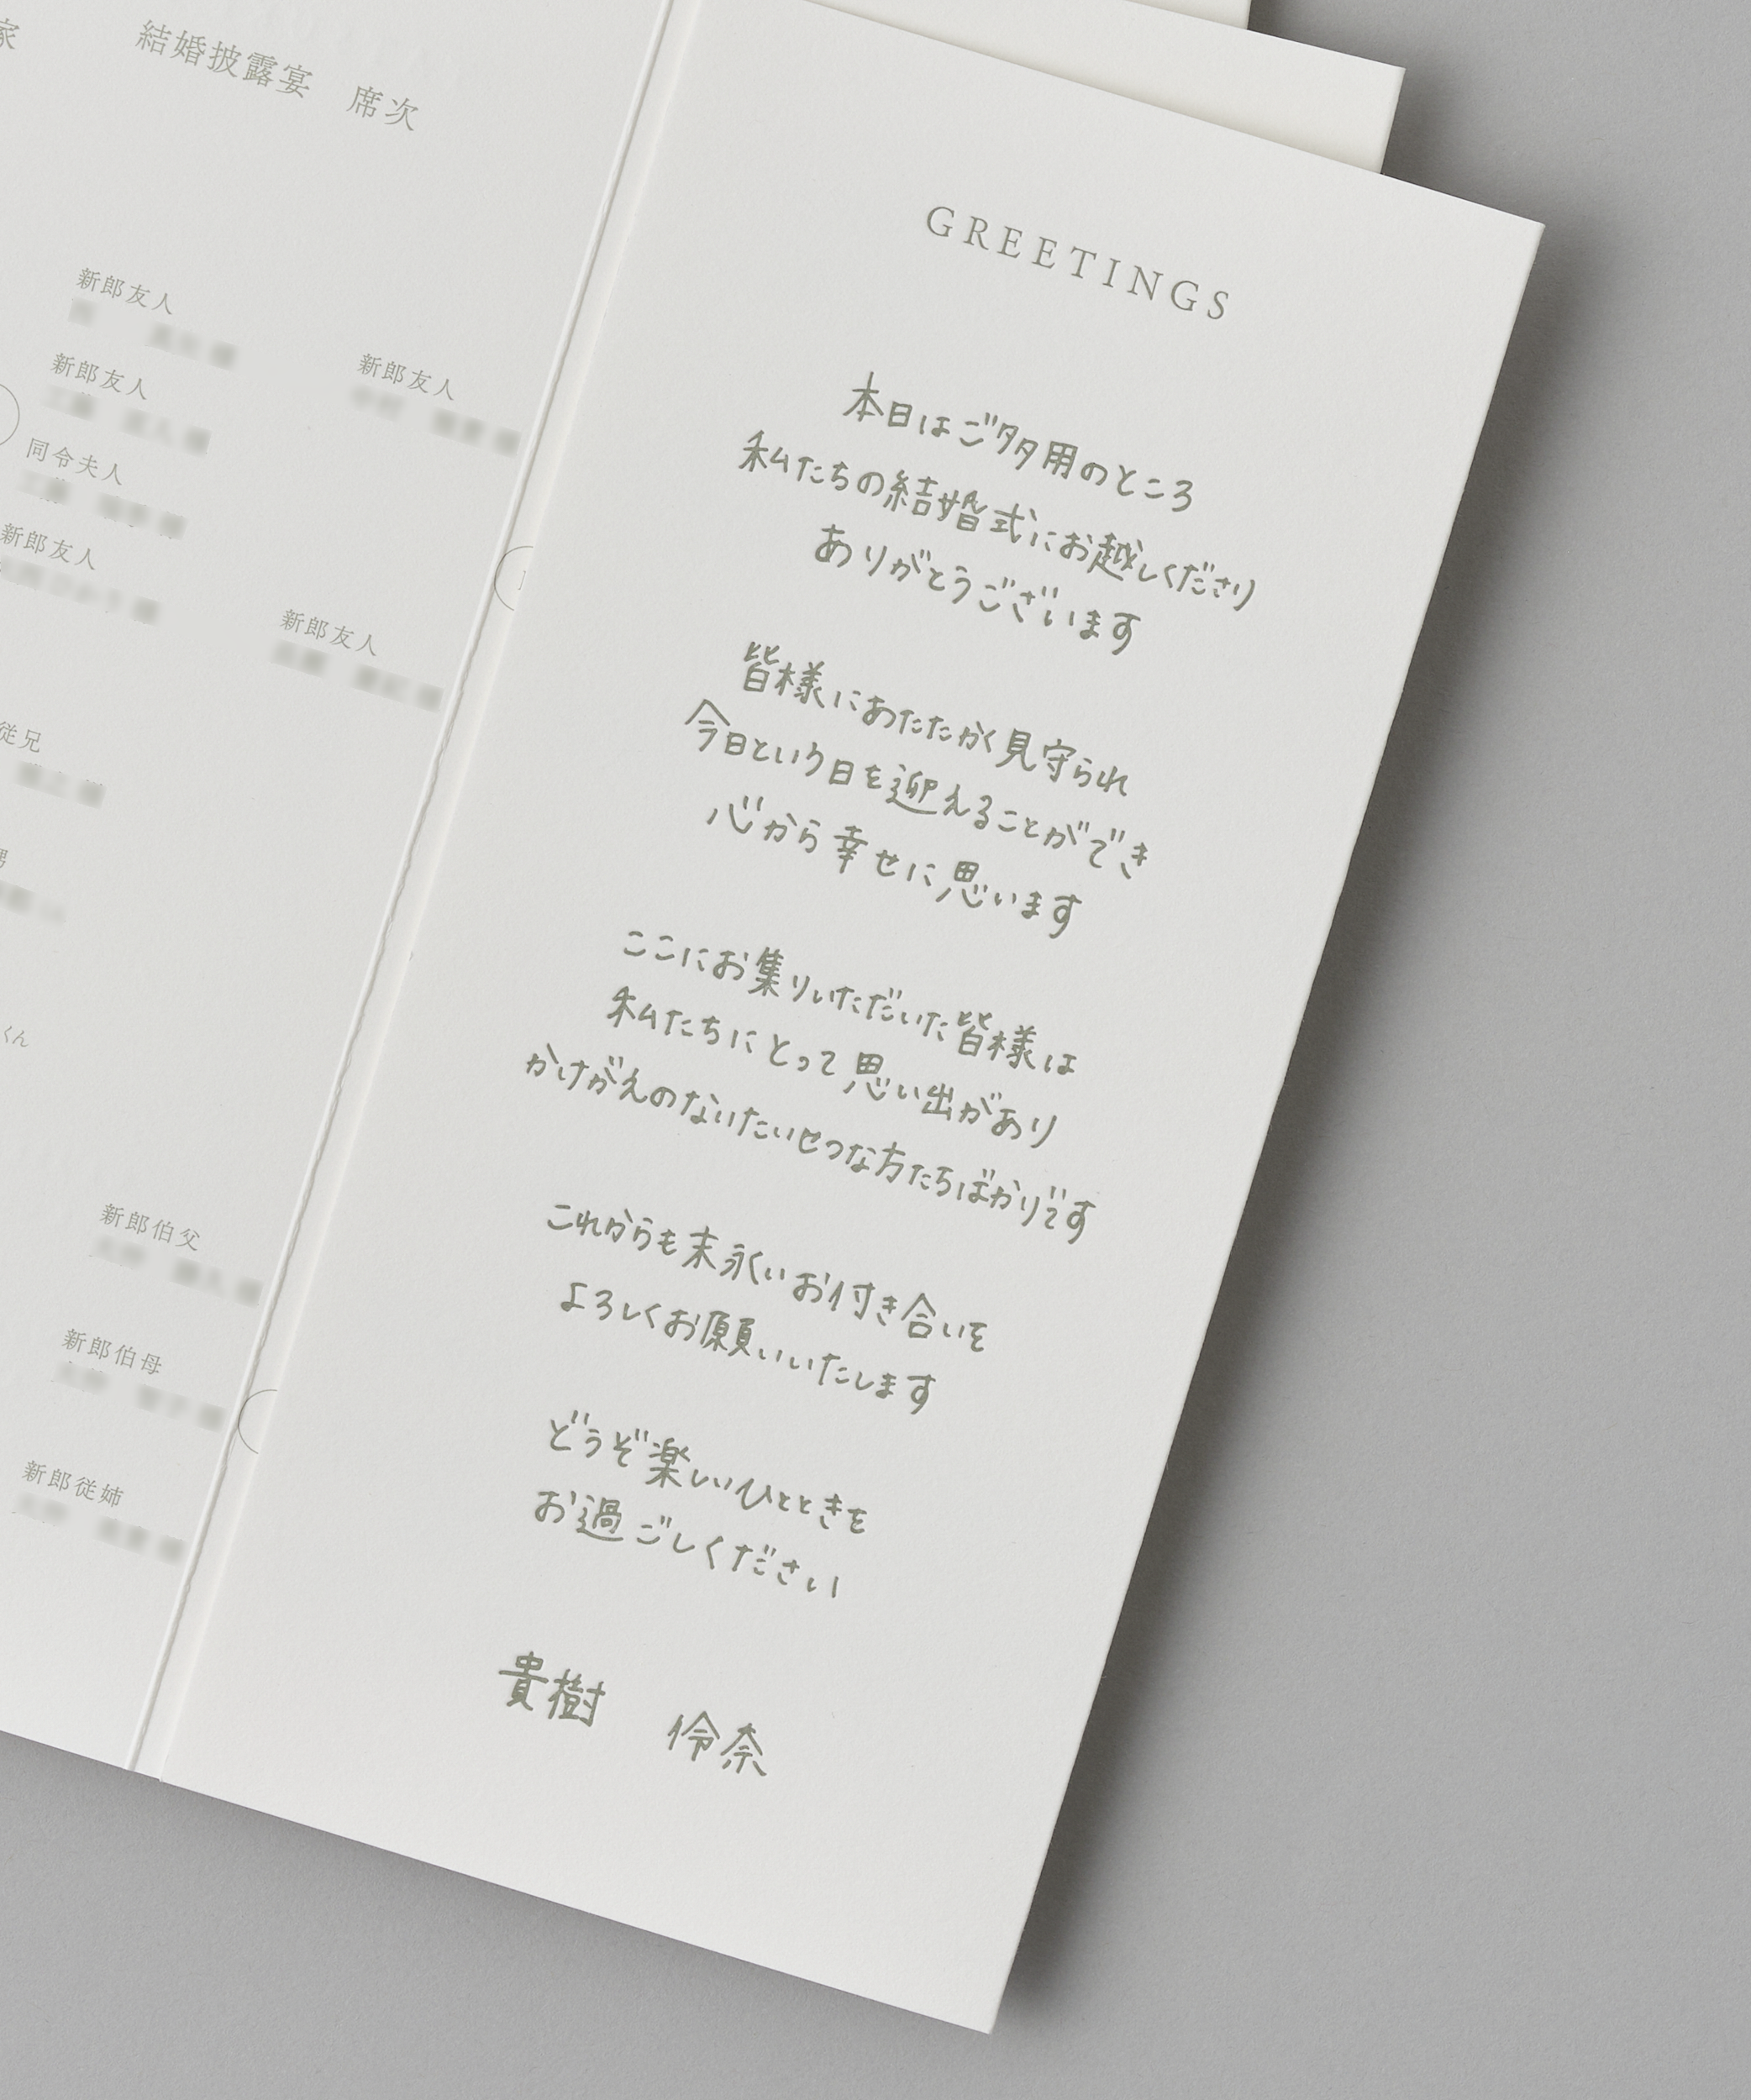 家
結婚披露宴　席次
新郎友人
新郎友人
新郎友人
同令夫人
新郎友人
新郎友人
従兄
くん
新郎伯父
新郎伯母
新郎従姉
GREETINGS
本日はご多用のところ
私たちの結婚式にお越しくださり
ありがとうございます
皆様にあたたかく見守られ
今日という日を迎えることができ
心から幸せに思います
ここにお集りいただいた皆様は
私たちにとって思い出があり
かけがえのないたいせつな方たちばかりです
これからも末永いお付き合いを
よろしくお願いいたします
どうぞ楽しいひとときを
お過ごしください
貴樹　伶奈